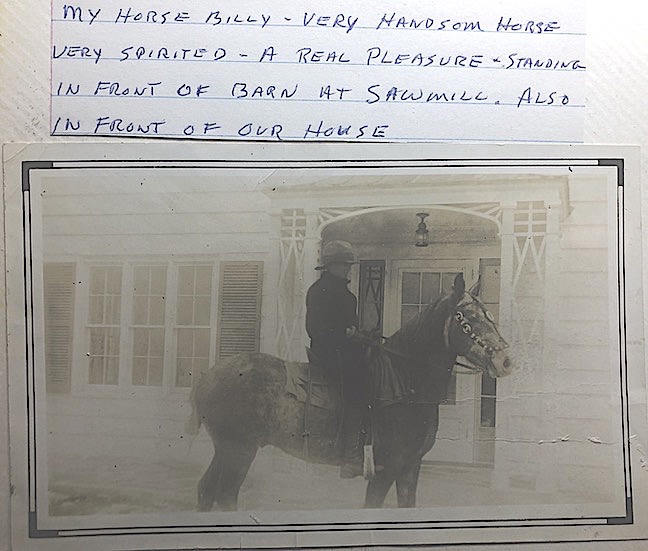 MY HORSE BILLY - VERY HANDSOM HORSE
VERY SPIRITED - A REAL PLEASURE - STANDING
IN FRONT OF BARN AT SAWMILL. ALSO
IN FRONT OF OUR HOUSE